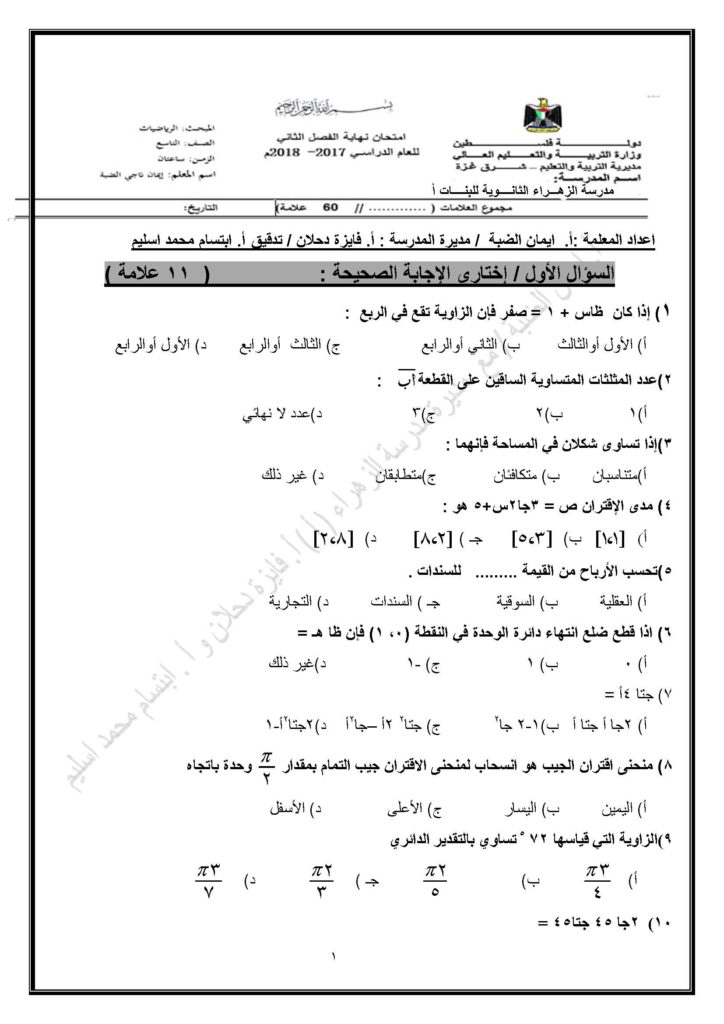 بسم الله الرحمن الرحيم
دولـــة فلســـطين
وزارة التربيـــة والتعلـــيم العـــالي
مديرية التربية والتعليم – شـــرق غزة
اسـم المدرسـة:
مدرسة الزهـراء الثانـوية للبنـات أ
امتحان نهاية الفصل الثاني
للعام الدراسي 2017– 2018م
المبحث: الرياضيات
الصف: التاسع
الزمن: ساعتان
اسم المعلم: إيمان ناجي الضبة
مجموع العلامات ( ............. // 60 علامة) التاريخ:
اعداد المعلمة :أ. ايمان الضبة / مديرة المدرسة : أ. فايزة دحلان / تدقيق أ. ابتسام محمد اسليم
السؤال الأول / إختارى الإجابة الصحيحة : ( ١١ علامة )
١) إذا كان ظاس + ١ = صفر فإن الزاوية تقع في الربع :
أ) الأول أوالثالث ب) الثاني أوالرابع ج) الثالث أوالرابع د) الأول أوالرابع
٢)عدد المثلثات المتساوية الساقين على القطعة أب :
أ)١ ب)٢ ج)٣ د)عدد لا نهائي
٣)إذا تساوى شكلان في المساحة فإنهما :
أ)متناسبان ب) متكافئان ج)متطابقان د) غير ذلك
٤) مدى الإقتران ص = ٣جا٢س+٥ هو :
أ) [١،١] ب) [٥،٣] جـ ) [٨،٢] د) [٢،٨]
٥)تحسب الأرباح من القيمة ......... للسندات .
أ) العقلية ب) السوقية جـ ) السندات د) التجارية
٦) اذا قطع ضلع انتهاء دائرة الوحدة في النقطة (٠، ١) فإن ظا هـ =
أ) ٠ ب) ١ ج) -١ د)غير ذلك
٧) جتا ٤أ =
أ) ٢جا أ جتا أ ب)١-٢ جا٢ ج) جتا٢ ٢أ –جا٢أ د)٢جتا٢أ-١
٨) منحنى اقتران الجيب هو انسحاب لمنحنى الاقتران جيب التمام بمقدار π/٢ وحدة باتجاه
أ) اليمين ب) اليسار ج) الأعلى د) الأسفل
٩)الزاوية التي قياسها ٧٢ ° تساوي بالتقدير الدائري
أ) π٣/٤ ب) π٢/٥ جـ ) π٢/٣ د) π٣/٧
١٠) ٢جا ٤٥ جتا٤٥ =
١